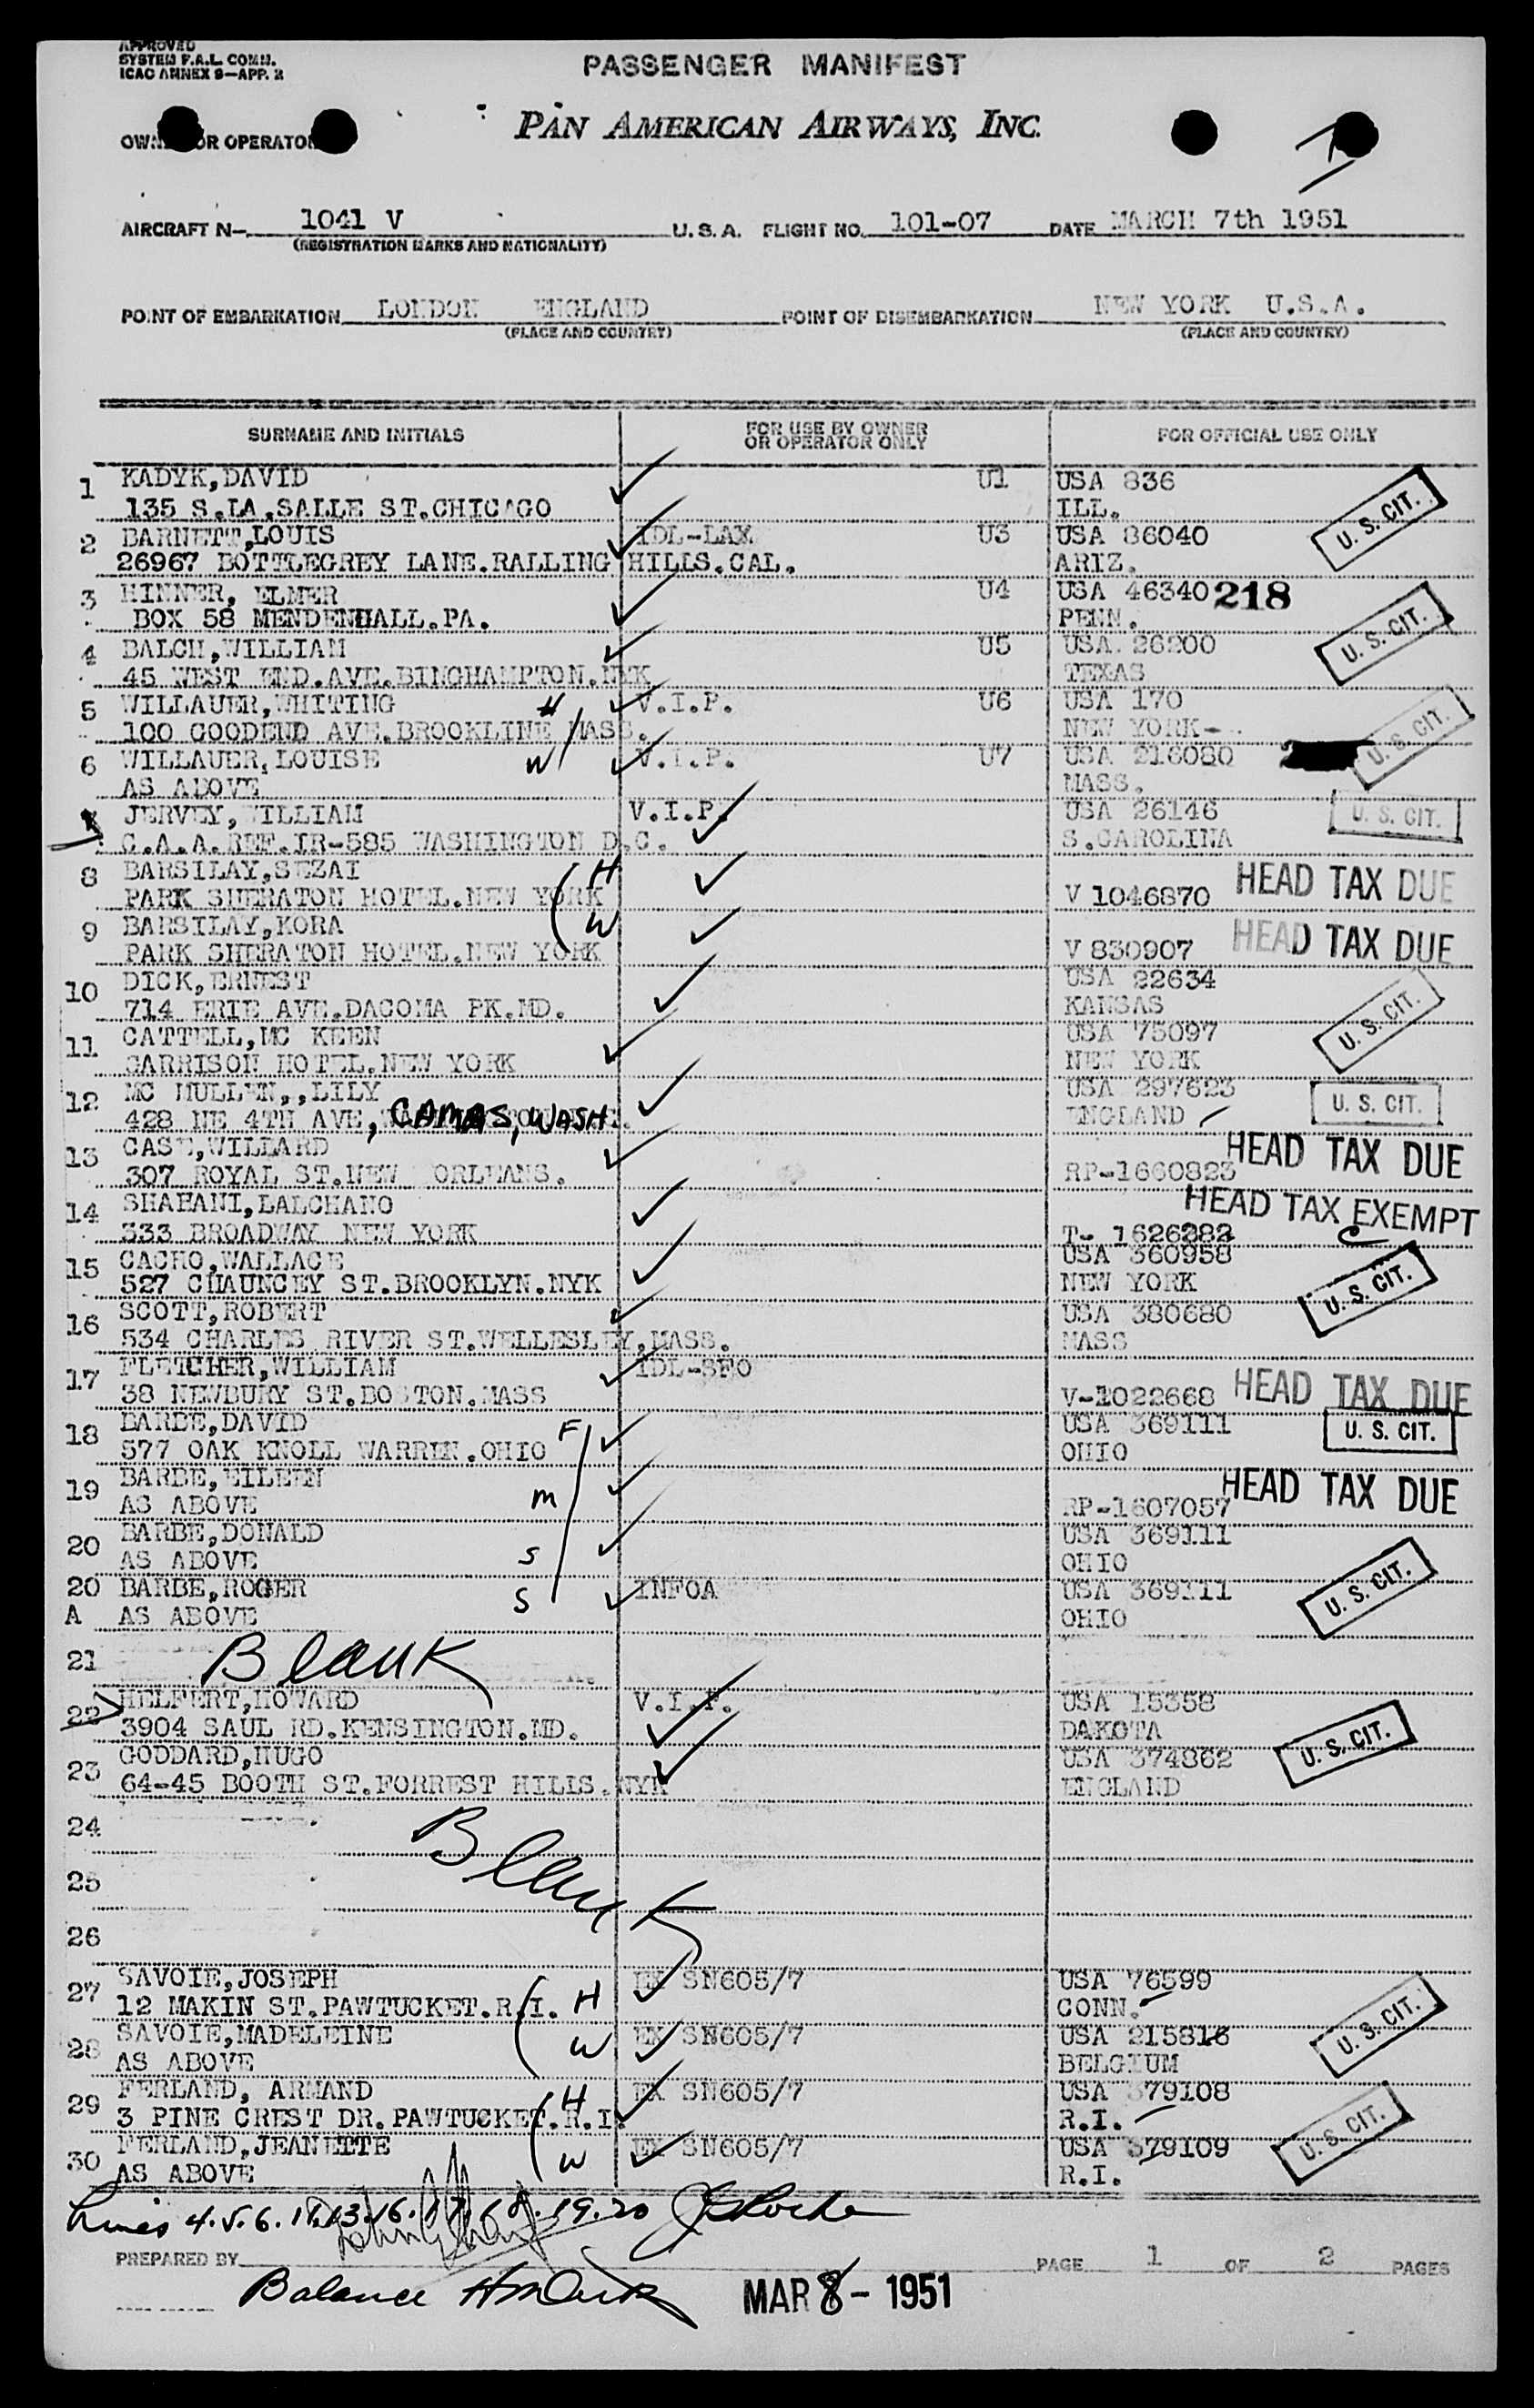 APPROVED
SYSTEM F.A.L. COMM.
ICAO ANNEX 9—APP. 2
PASSENGER MANIFEST
PAN AMERICAN AIRWAYS, INC.
OR OPERATOR
AIRCRAFT N- 1041 V U. S. A. FLIGHT NO. 101-07 DATE MARCH 7th 1951
(REGISTRATION MARKS AND NATIONALITY)
POINT OF EMBARKATION LONDON ENGLAND POINT OF DISEMBARKATION NEW YORK U.S.A.
(PLACE AND COUNTRY) (PLACE AND COUNTRY)
SURNAME AND INITIALS FOR USE BY OWNER OR OPERATOR ONLY FOR OFFICIAL USE ONLY
1 KADYK,DAVID U1 USA 836
135 S.LA.SALLE ST.CHICAGO ILL. U. S. CIT.
2 BARNETT,LOUIS IDL-LAX U3 USA 86040
26967 BOTTLEGREY LANE.RALLING HILLS.CAL. ARIZ.
3 HINNER, ELMER U4 USA 46340 218
BOX 58 MENDENHALL.PA. PENN. U. S. CIT.
4 BALCH,WILLIAM U5 USA 26200
45 WEST END.AVE.BINGHAMPTON.NYK TEXAS
5 WILLAUER,WHITING H V.I.P. U6 USA 170
100 GOODEND AVE.BROOKLINE MASS. NEW YORK- U. S. CIT.
6 WILLAUER,LOUISE W V.I.P. U7 USA 216080
AS ABOVE MASS.
JERVEY, WILLIAM V.I.P. USA 26146 U. S. CIT.
C.A.A.REF.IR-585 WASHINGTON D.C. S.CAROLINA
8 BARSILAY,SEZAI H
PARK SHERATON HOTEL.NEW YORK V 1046870 HEAD TAX DUE
9 BARSILAY,KORA W
PARK SHERATON HOTEL.NEW YORK V 830907 HEAD TAX DUE
10 DICK,ERNEST USA 22634
714 ERIE AVE.DACOMA PK.MD. KANSAS U. S. CIT.
11 CATTELL,MC KEEN USA 75097
GARRISON HOTEL.NEW YORK NEW YORK
12 MC MULLEN,,LILY USA 297623 U. S. CIT.
428 NE 4TH AVE, CAMAS, WASH. ENGLAND
13 CASE,WILLARD
307 ROYAL ST.NEW ORLEANS. RP-1660823 HEAD TAX DUE
14 SHAHANI,LALCHANO HEAD TAX EXEMPT
333 BROADWAY NEW YORK T- 1626282
15 CACHO,WALLACE USA 360958
527 CHAUNCEY ST.BROOKLYN.NYK NEW YORK U. S. CIT.
16 SCOTT,ROBERT USA 380680
534 CHARLES RIVER ST.WELLESLEY,MASS. MASS
17 FLETCHER,WILLIAM IDL-SFO
38 NEWBURY ST.BOSTON.MASS V-1022668 HEAD TAX DUE
18 BARBE,DAVID F USA 369111 U. S. CIT.
577 OAK KNOLL WARREN.OHIO OHIO
19 BARBE,EILEEN
AS ABOVE M RP-1607057 HEAD TAX DUE
20 BARBE,DONALD USA 369111
AS ABOVE S OHIO U. S. CIT.
20 BARBE,ROGER S INFOA USA 369111
A AS ABOVE OHIO
21 Blank
22 HELFERT,HOWARD V.I.P. USA 15358
3904 SAUL RD.KENSINGTON.MD. DAKOTA U. S. CIT.
23 GODDARD,HUGO USA 374862
64-45 BOOTH ST.FORREST HILLS.NYK ENGLAND
24 Blank
25
26
27 SAVOIE,JOSEPH EX SN605/7 USA 76599
12 MAKIN ST.PAWTUCKET.R.I. H CONN. U. S. CIT.
28 SAVOIE,MADELEINE W EX SN605/7 USA 215816
AS ABOVE BELGIUM
29 FERLAND, ARMAND H EX SN605/7 USA 379108
3 PINE CREST DR.PAWTUCKET.R.I. R.I. U. S. CIT.
30 FERLAND,JEANETTE W EX SN605/7 USA 379109
AS ABOVE R.I.
Lines 4.5.6.11.13.16.17.18.19.20
PREPARED BY PAGE 1 OF 2 PAGES
Balance MAR 8 - 1951